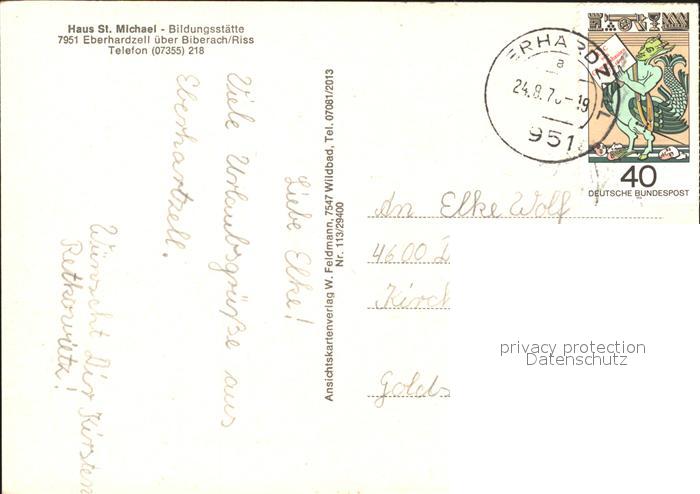 Haus St. Michael - Bildungsstätte
7951 Eberhardzell über Biberach/Riss
Telefon (07355) 218
Liebe Elke!
Viele Urlaubsgrüße aus
Eberhartzell.
Wünscht Dir Kirsten
Retkowietz!
Ansichtskartenverlag W. Feldmann, 7547 Wildbad, Tel. 07081/2013
Nr. 113/29400
ERHARDZELL
a
24.8.76-19
951
40
DEUTSCHE BUNDESPOST
An Elke Wolf
4600
Kirch
Golds
privacy protection
Datenschutz